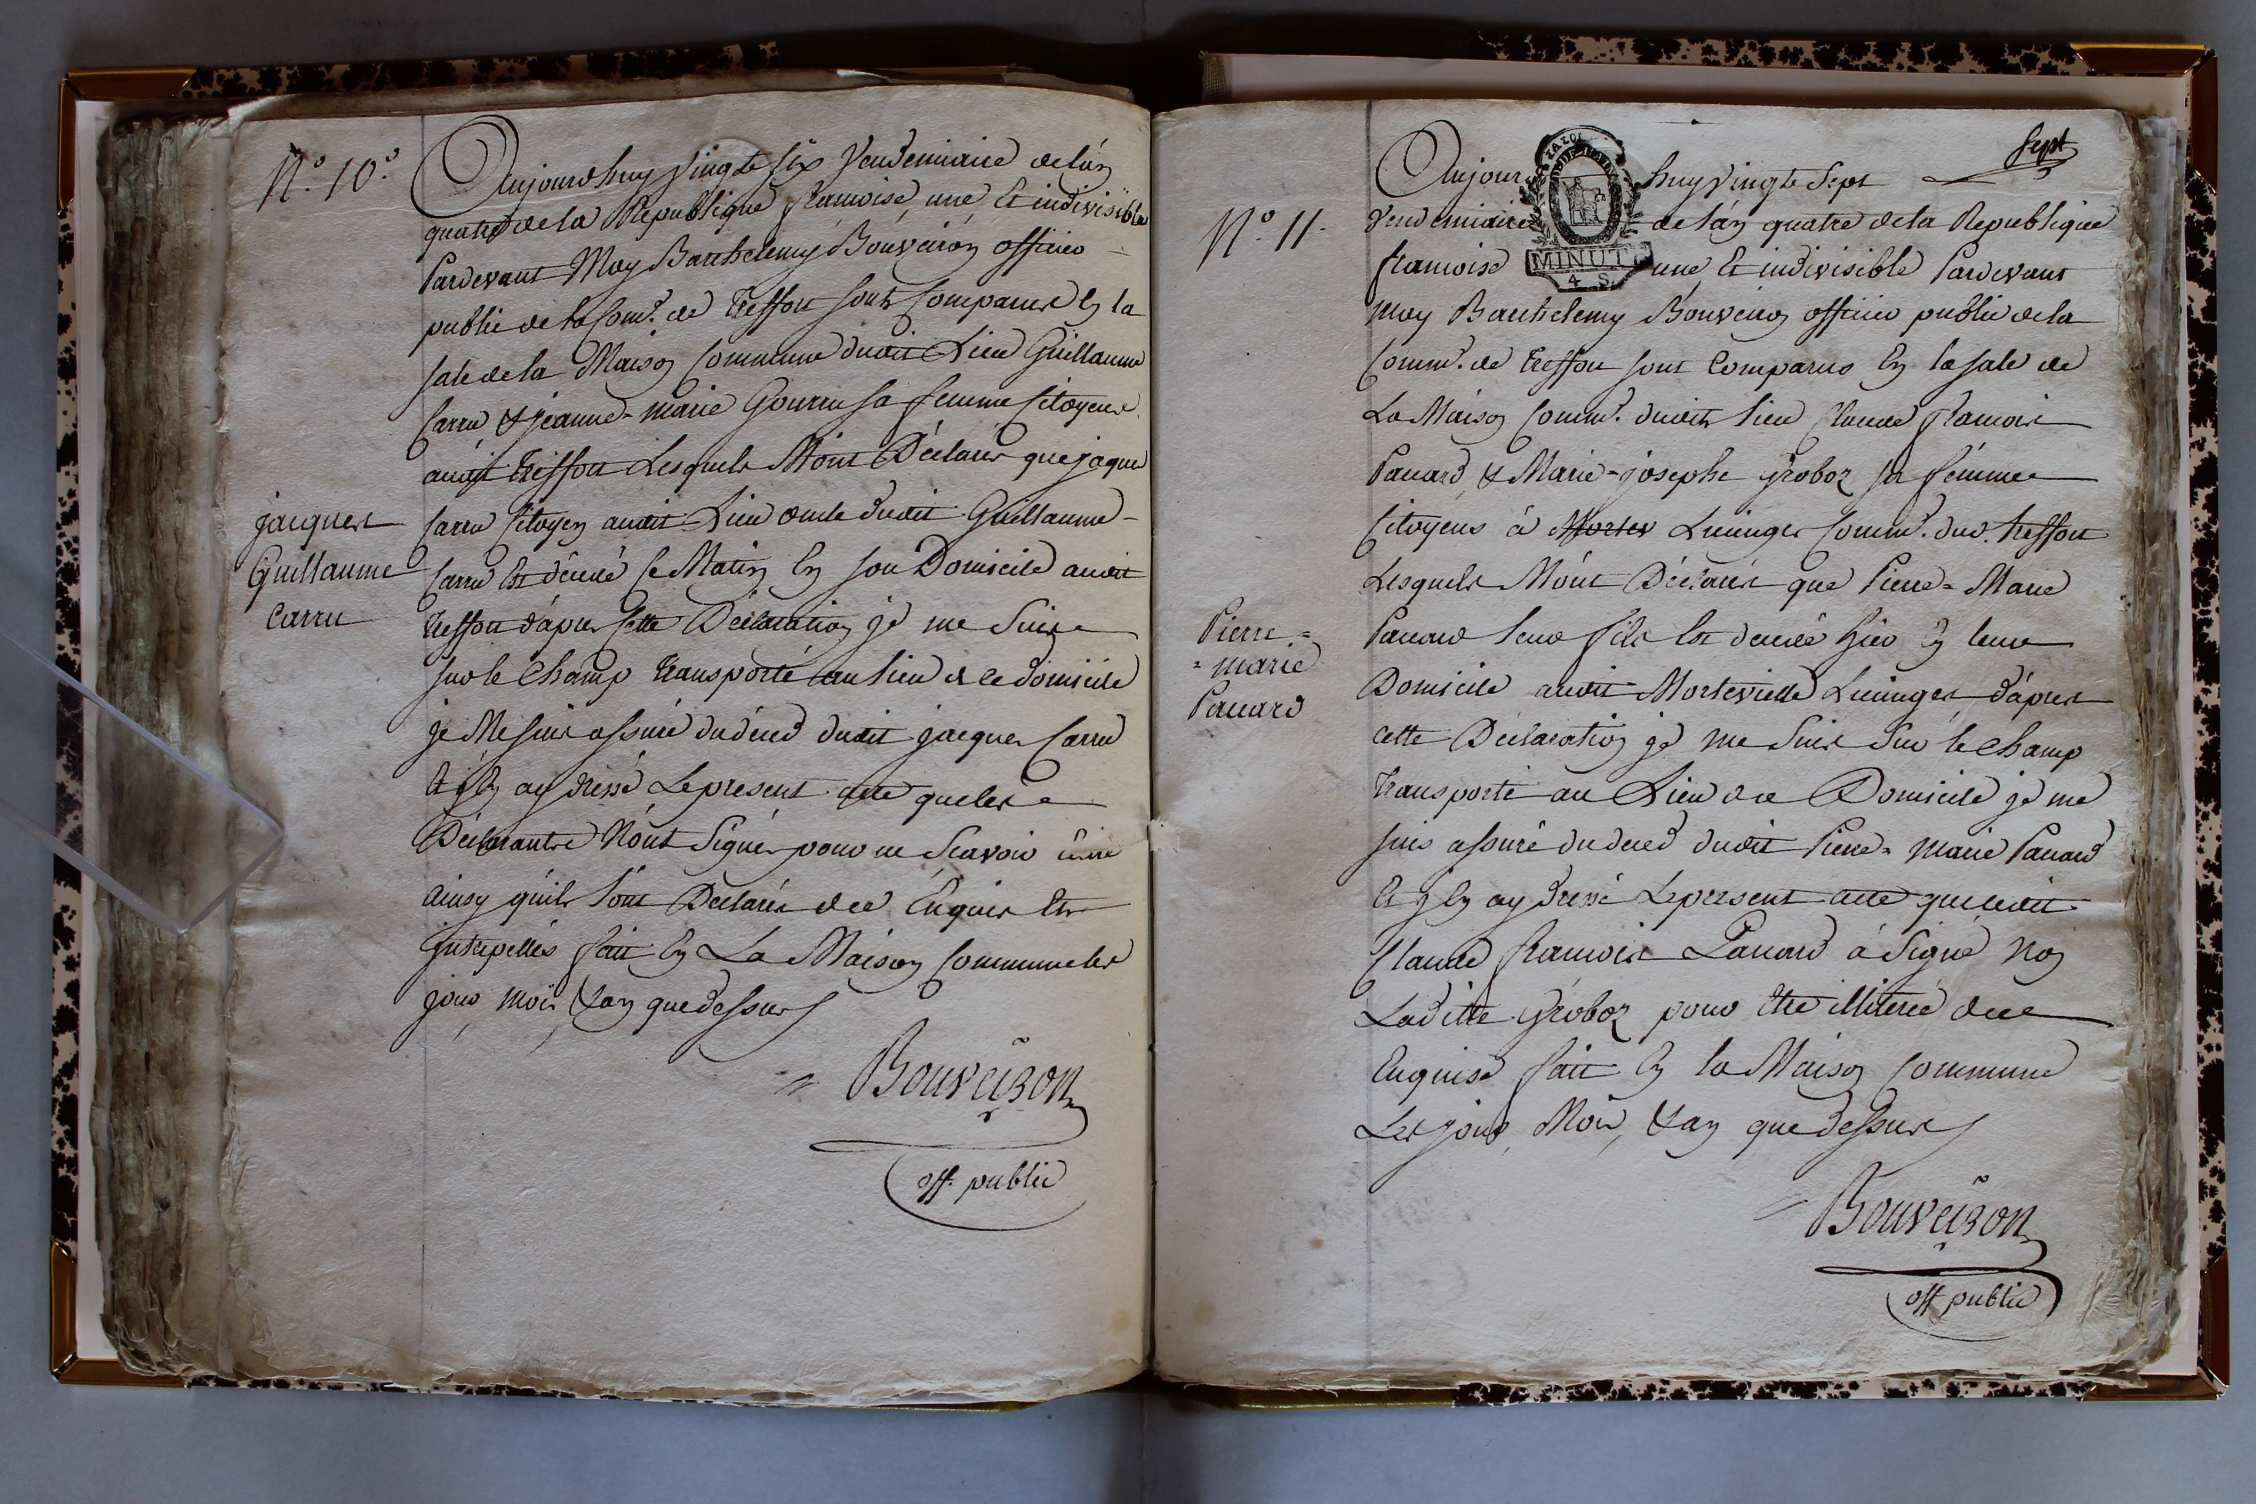 N.° 10.°
Aujourdhuy vingte six Vendemiaire de lán
quatre de la Republique francoise, une Et indivisible
Pardevant Moy Barthelemy Bouveiron officier
public de la Com.e de Treffort sont Comparus En la
sale de la Maison Commune dudit Lieu Guillaume
Carru & jeanne-marie Gourru sa femme Citoyens
audit Treffort Lesquels Mónt Déclarés que jaque
Carru Citoyen audit Lieu oncle dudit Guillaume
jacques
Guillaume
Carru
Carru Est décedé Ce Matin En son Domicile audit
Treffort d'áprès Cette Déclaration je me Suis
sur le Champ Transporté au lieu de ce domicile
je Me suis assuré du déced dudit jacques Carru
Et j'En ay dressé Le present acte que les
Déclarants Nónt Signés pour ne Scavoir écrire
ainsy quils Lónt Déclarés de ce Enquis Et
jnterpellés fait En La Maison Commune les
jour, mois, & an que dessus
Bouveiron
off. public
Sept
N.° 11.
Aujourdhuy vingte Sept
Vendemiaire de lán quatre de la Republique
francoise une Et indivisible Pardevant
MINUTE
4 S.
Moy Barthelemy Bouveiron officier public de la
Comm.e de Treffort sont Comparus En la sale de
La Maison Comm.e dudit lieu Claude francois
Panard & Marie-josephe Groboz sa fémme
Citoyens à Mortev Lucinges Comm.e dud. Treffort
Lesquels Mónt Déclarés que Pierre-Marie
Pierre =
= marie
Panard
Panard leur fils Est decedé hier En leur
Domicile audit Mortevielle Lucinges d'áprès
cette Déclaration je me Suis Sur le Champ
Transporté au Lieu de ce Domicile je me
suis assuré du deced dudit Pierre-marie Panard
Et j'En ay dressé Le present acte que ledit
Claude francois Panard á Signé Non
Laditte Groboz pour Etre illiteree de ce
Enquise fait En la Maison Commune
Les jour, Mois, & an que dessus
Bouveiron
off public